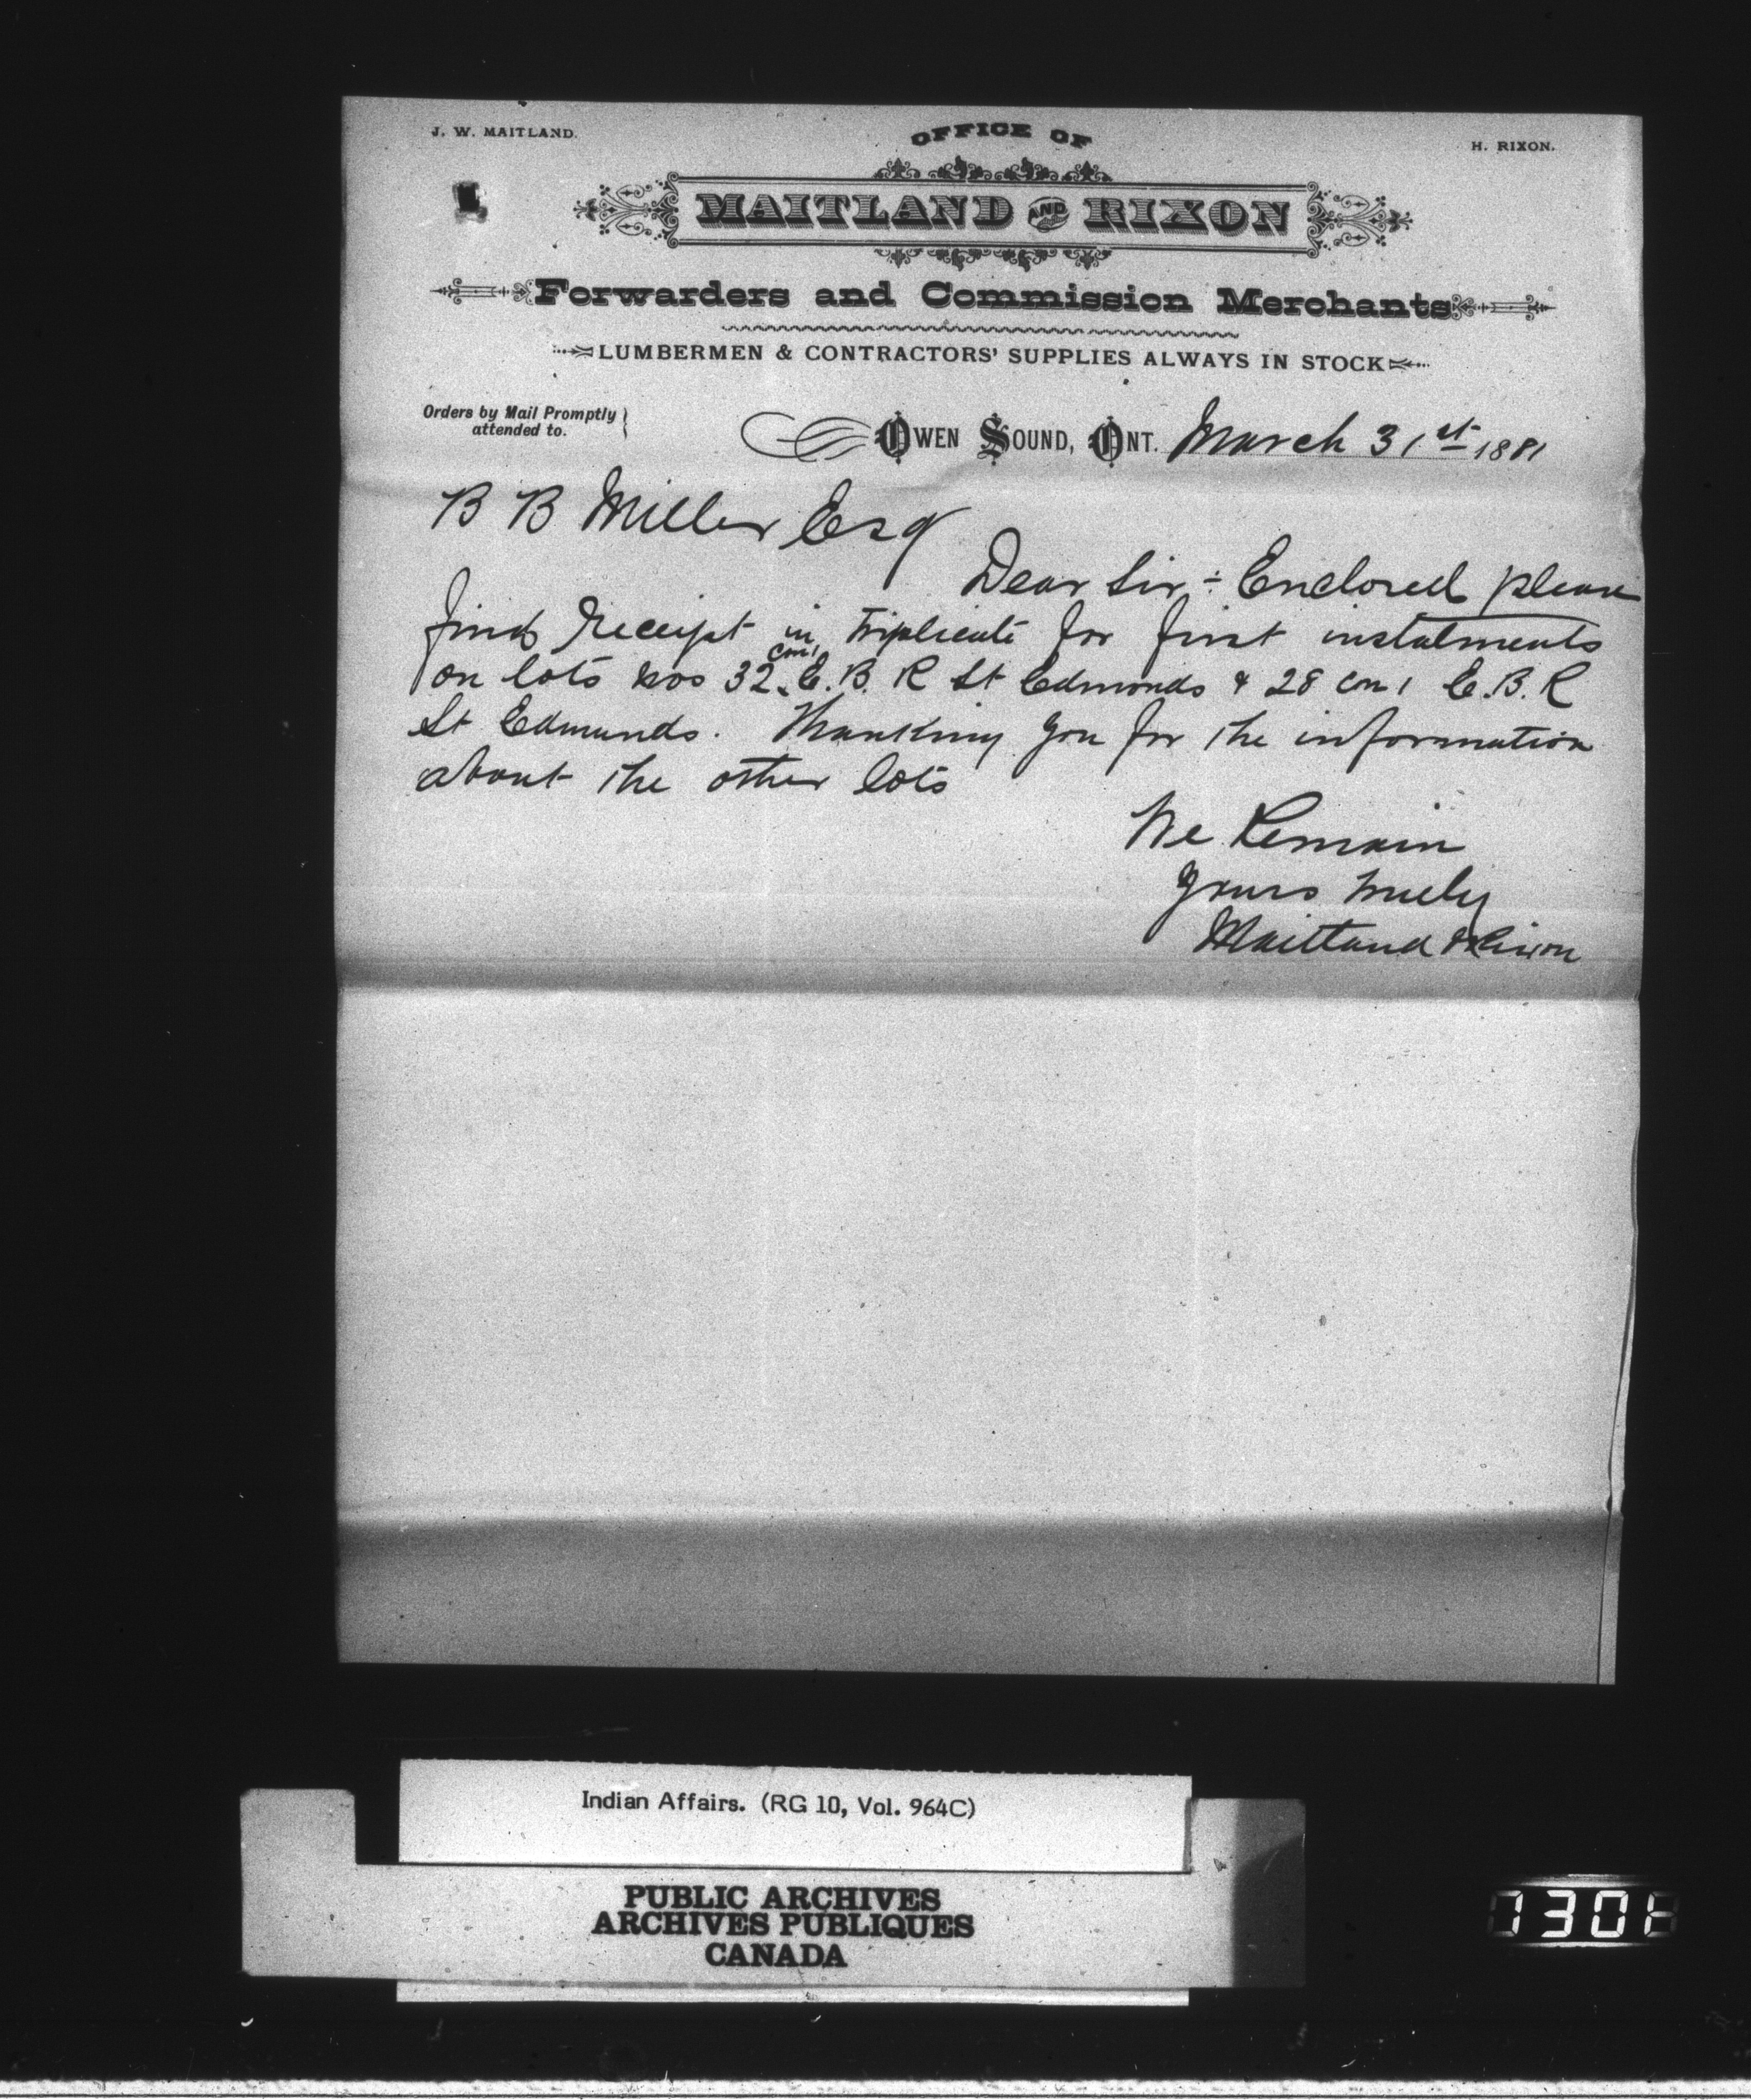 J. W. MAITLAND.
H. RIXON.
OFFICE OF
MAITLAND AND RIXON
Forwarders and Commission Merchants
LUMBERMEN & CONTRACTORS' SUPPLIES ALWAYS IN STOCK
Orders by Mail Promptly
attended to.
OWEN SOUND, ONT. March 31st 1881
B B Miller Esq
Dear Sir :- Enclosed please
find receipt in triplicate for first instalments
con 1
on lots nos 32 E. B. R St Edmonds & 28 con 1 E. B. R
St Edmunds. Thanking you for the information
about the other lots
We Remain
Yours truly
Maitland & Rixon
Indian Affairs. (RG 10, Vol. 964C)
PUBLIC ARCHIVES
ARCHIVES PUBLIQUES
CANADA